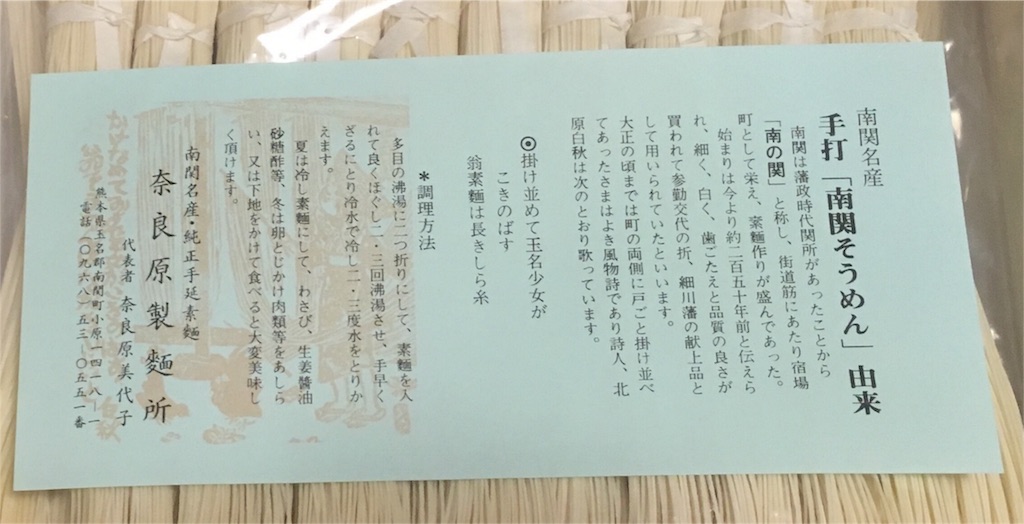 南関名産
手打「南関そうめん」由来
南関は藩政時代関所があったことから
「南の関」と称し、街道筋にあたり宿場
町として栄え、素麺作りが盛んであった。
始まりは今より約二百五十年前と伝えら
れ、細く、白く、歯ごたえと品質の良さが
買われて参勤交代の折、細川藩の献上品と
して用いられていたといいます。
大正の頃までは町の両側に戸ごと掛け並べ
てあったさまはよき風物詩であり詩人、北
原白秋は次のとおり歌っています。
◎掛け並めて玉名少女が
こきのばす
翁素麺は長きしら糸
*調理方法
多目の沸湯に二つ折りにして、素麺を入
れて良くほぐし二・三回沸湯させ、手早く
ざるにとり冷水で冷し二・三度水をとりか
えます。
夏は冷し素麺にして、わさび、生姜醬油
砂糖酢等、冬は卵とじかけ肉類等をあしら
い、又は下地をかけて食べると大変美味し
く頂けます。
南関名産・純正手延素麺
奈良原製麺所
代表者 奈良原美代子
熊本県玉名郡南関町小原一四一八―一
電話(〇九六八)五三―〇五五一番